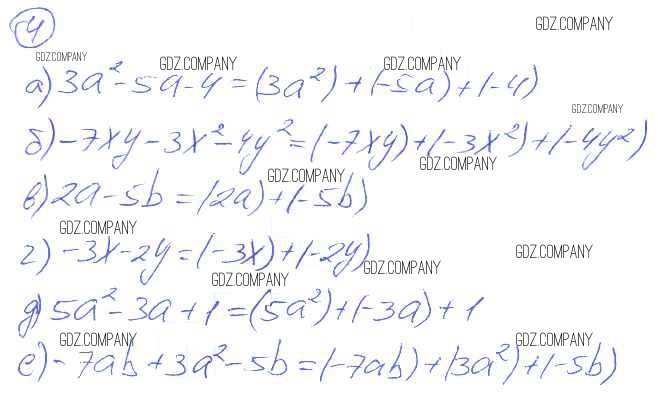 4
GDZ.COMPANY
GDZ.COMPANY GDZ.COMPANY GDZ.COMPANY
а) 3a² - 5a - 4 = (3a²) + (-5a) + (-4)
GDZ.COMPANY
б) -7xy - 3x² - 4y² = (-7xy) + (-3x²) + (-4y²)
GDZ.COMPANY
GDZ.COMPANY
в) 2a - 5b = (2a) + (-5b)
GDZ.COMPANY
г) -3x - 2y = (-3x) + (-2y)
GDZ.COMPANY
GDZ.COMPANY
GDZ.COMPANY
д) 5a² - 3a + 1 = (5a²) + (-3a) + 1
GDZ.COMPANY GDZ.COMPANY
е) -7ab + 3a² - 5b = (-7ab) + (3a²) + (-5b)